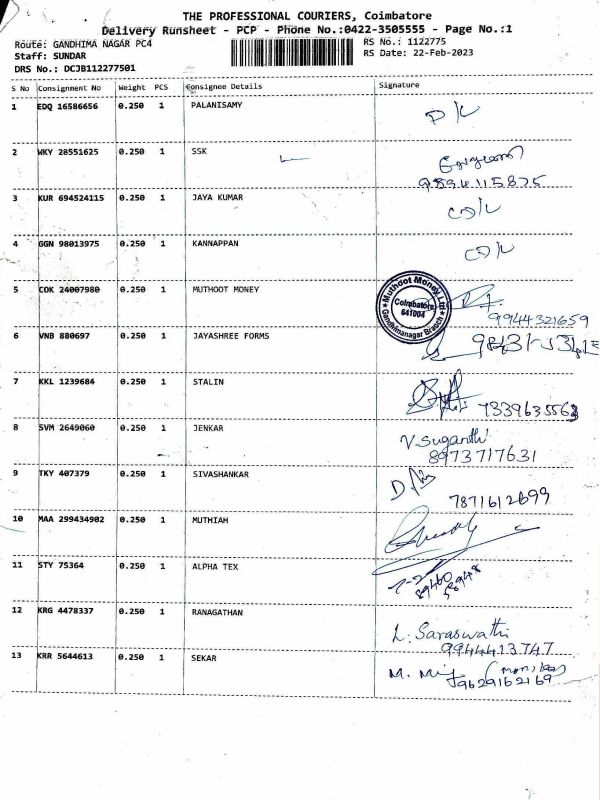 THE PROFESSIONAL COURIERS, Coimbatore
Delivery Runsheet - PCP - Phone No.:0422-3505555 - Page No.:1
Route: GANDHIMA NAGAR PC4 RS No.: 1122775
Staff: SUNDAR RS Date: 22-Feb-2023
DRS No.: DCJB112277501
S No Consignment No Weight PCS Consignee Details Signature
1 EDQ 16586656 0.250 1 PALANISAMY
2 WKY 28551625 0.250 1 SSK
9894115875
3 KUR 694524115 0.250 1 JAYA KUMAR
4 GGN 98013975 0.250 1 KANNAPPAN
5 CDK 24007980 0.250 1 MUTHOOT MONEY
Muthoot Money Ltd
Coimbatore
641004
Gandhimanagar Branch
9944321659
6 VNB 880697 0.250 1 JAYASHREE FORMS
7 KKL 1239684 0.250 1 STALIN
7339635563
8 SVM 2649060 0.250 1 JENKAR V. Suganthi
8973717631
9 TKY 407379 0.250 1 SIVASHANKAR
7871612699
10 MAA 299434902 0.250 1 MUTHIAH
11 STY 75364 0.250 1 ALPHA TEX
89460
58948
12 KRG 4478337 0.250 1 RANAGATHAN
L. Saraswathi
9944413747
13 KRR 5644613 0.250 1 SEKAR
9629162169